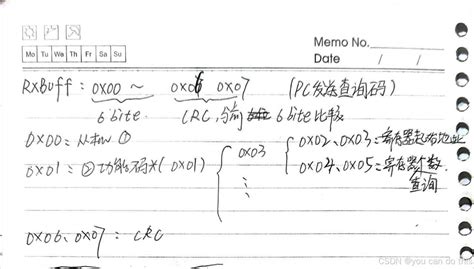 Memo No.
Mo Tu We Th Fr Sa Su
Date / /
RXBuff: 0x00 ~ 0x06 0x07 (PC发送查询码)
6 bite CRC,与前 6 bite比较
0x00: 从机 ①
0x01: ②功能码*(0x01)
0x03
0x02、0x03:寄存器起始地址
0x04、0x05:寄存器个数
查询
0x06、0x07: CRC
CSDN @you can do